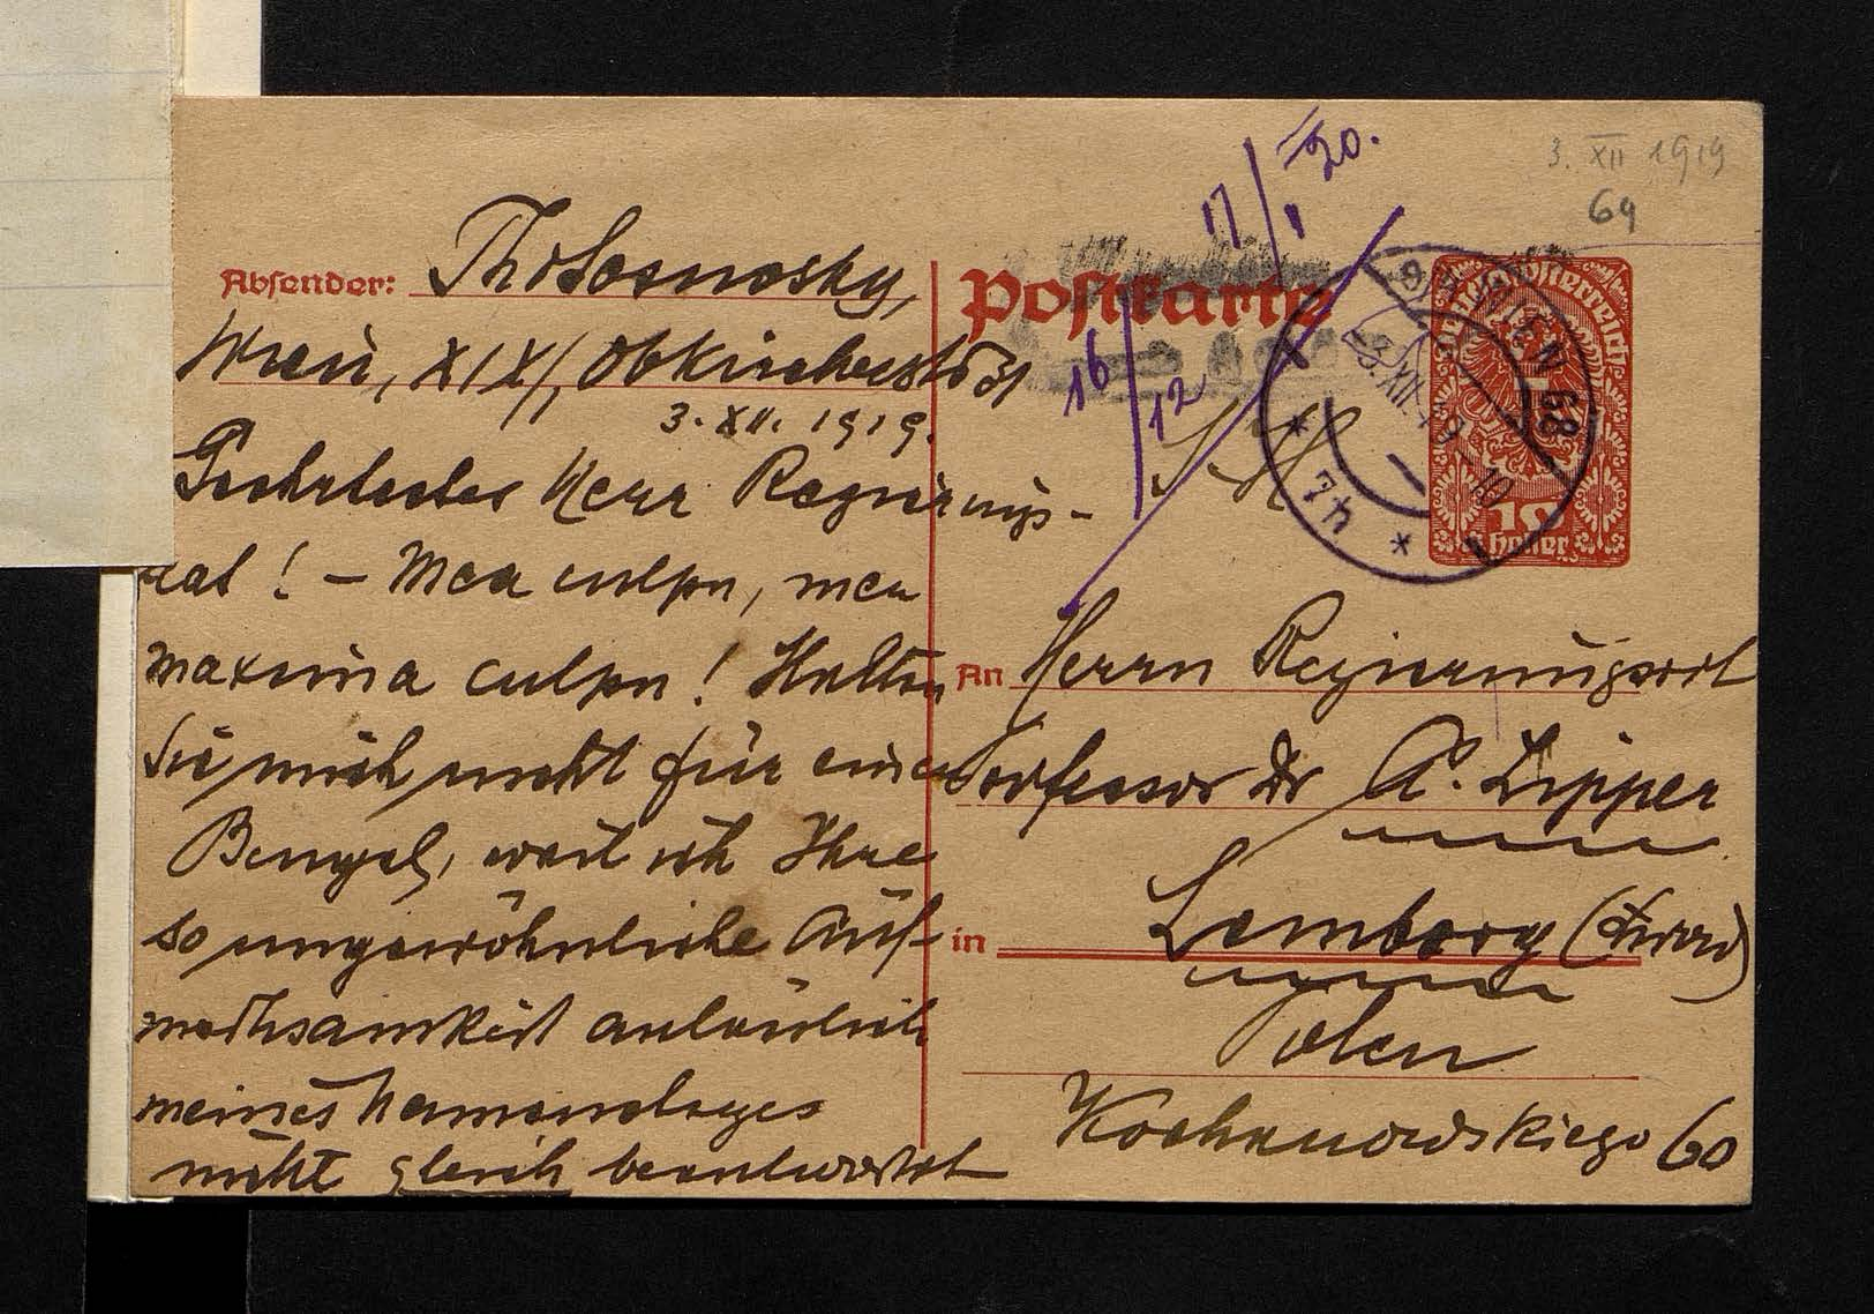 3. XII 1919
69
17/I 20.
16/12
Absender: Th v Sosnosky,
Wien, XIX/1, Obkircherstr 31
3. XII. 1919.
Geehrtester Herr Regierungs-
rat! – Mea culpa, mea
maxima culpa! Halten
Sie mich nicht für einen
Bengel, weil ich Ihre
so ungewöhnliche Auf-
merksamkeit anläßlich
meines Namenstages
nicht gleich beantwortet
Postkarte
WIEN 68
-3.XII.19 -10
7h
Deutschösterreich
10
Heller
An Herrn Regierungsrat
Professor Dr A. Zipper
in Lemberg (Lwow)
Polen
Kochanowskiego 60